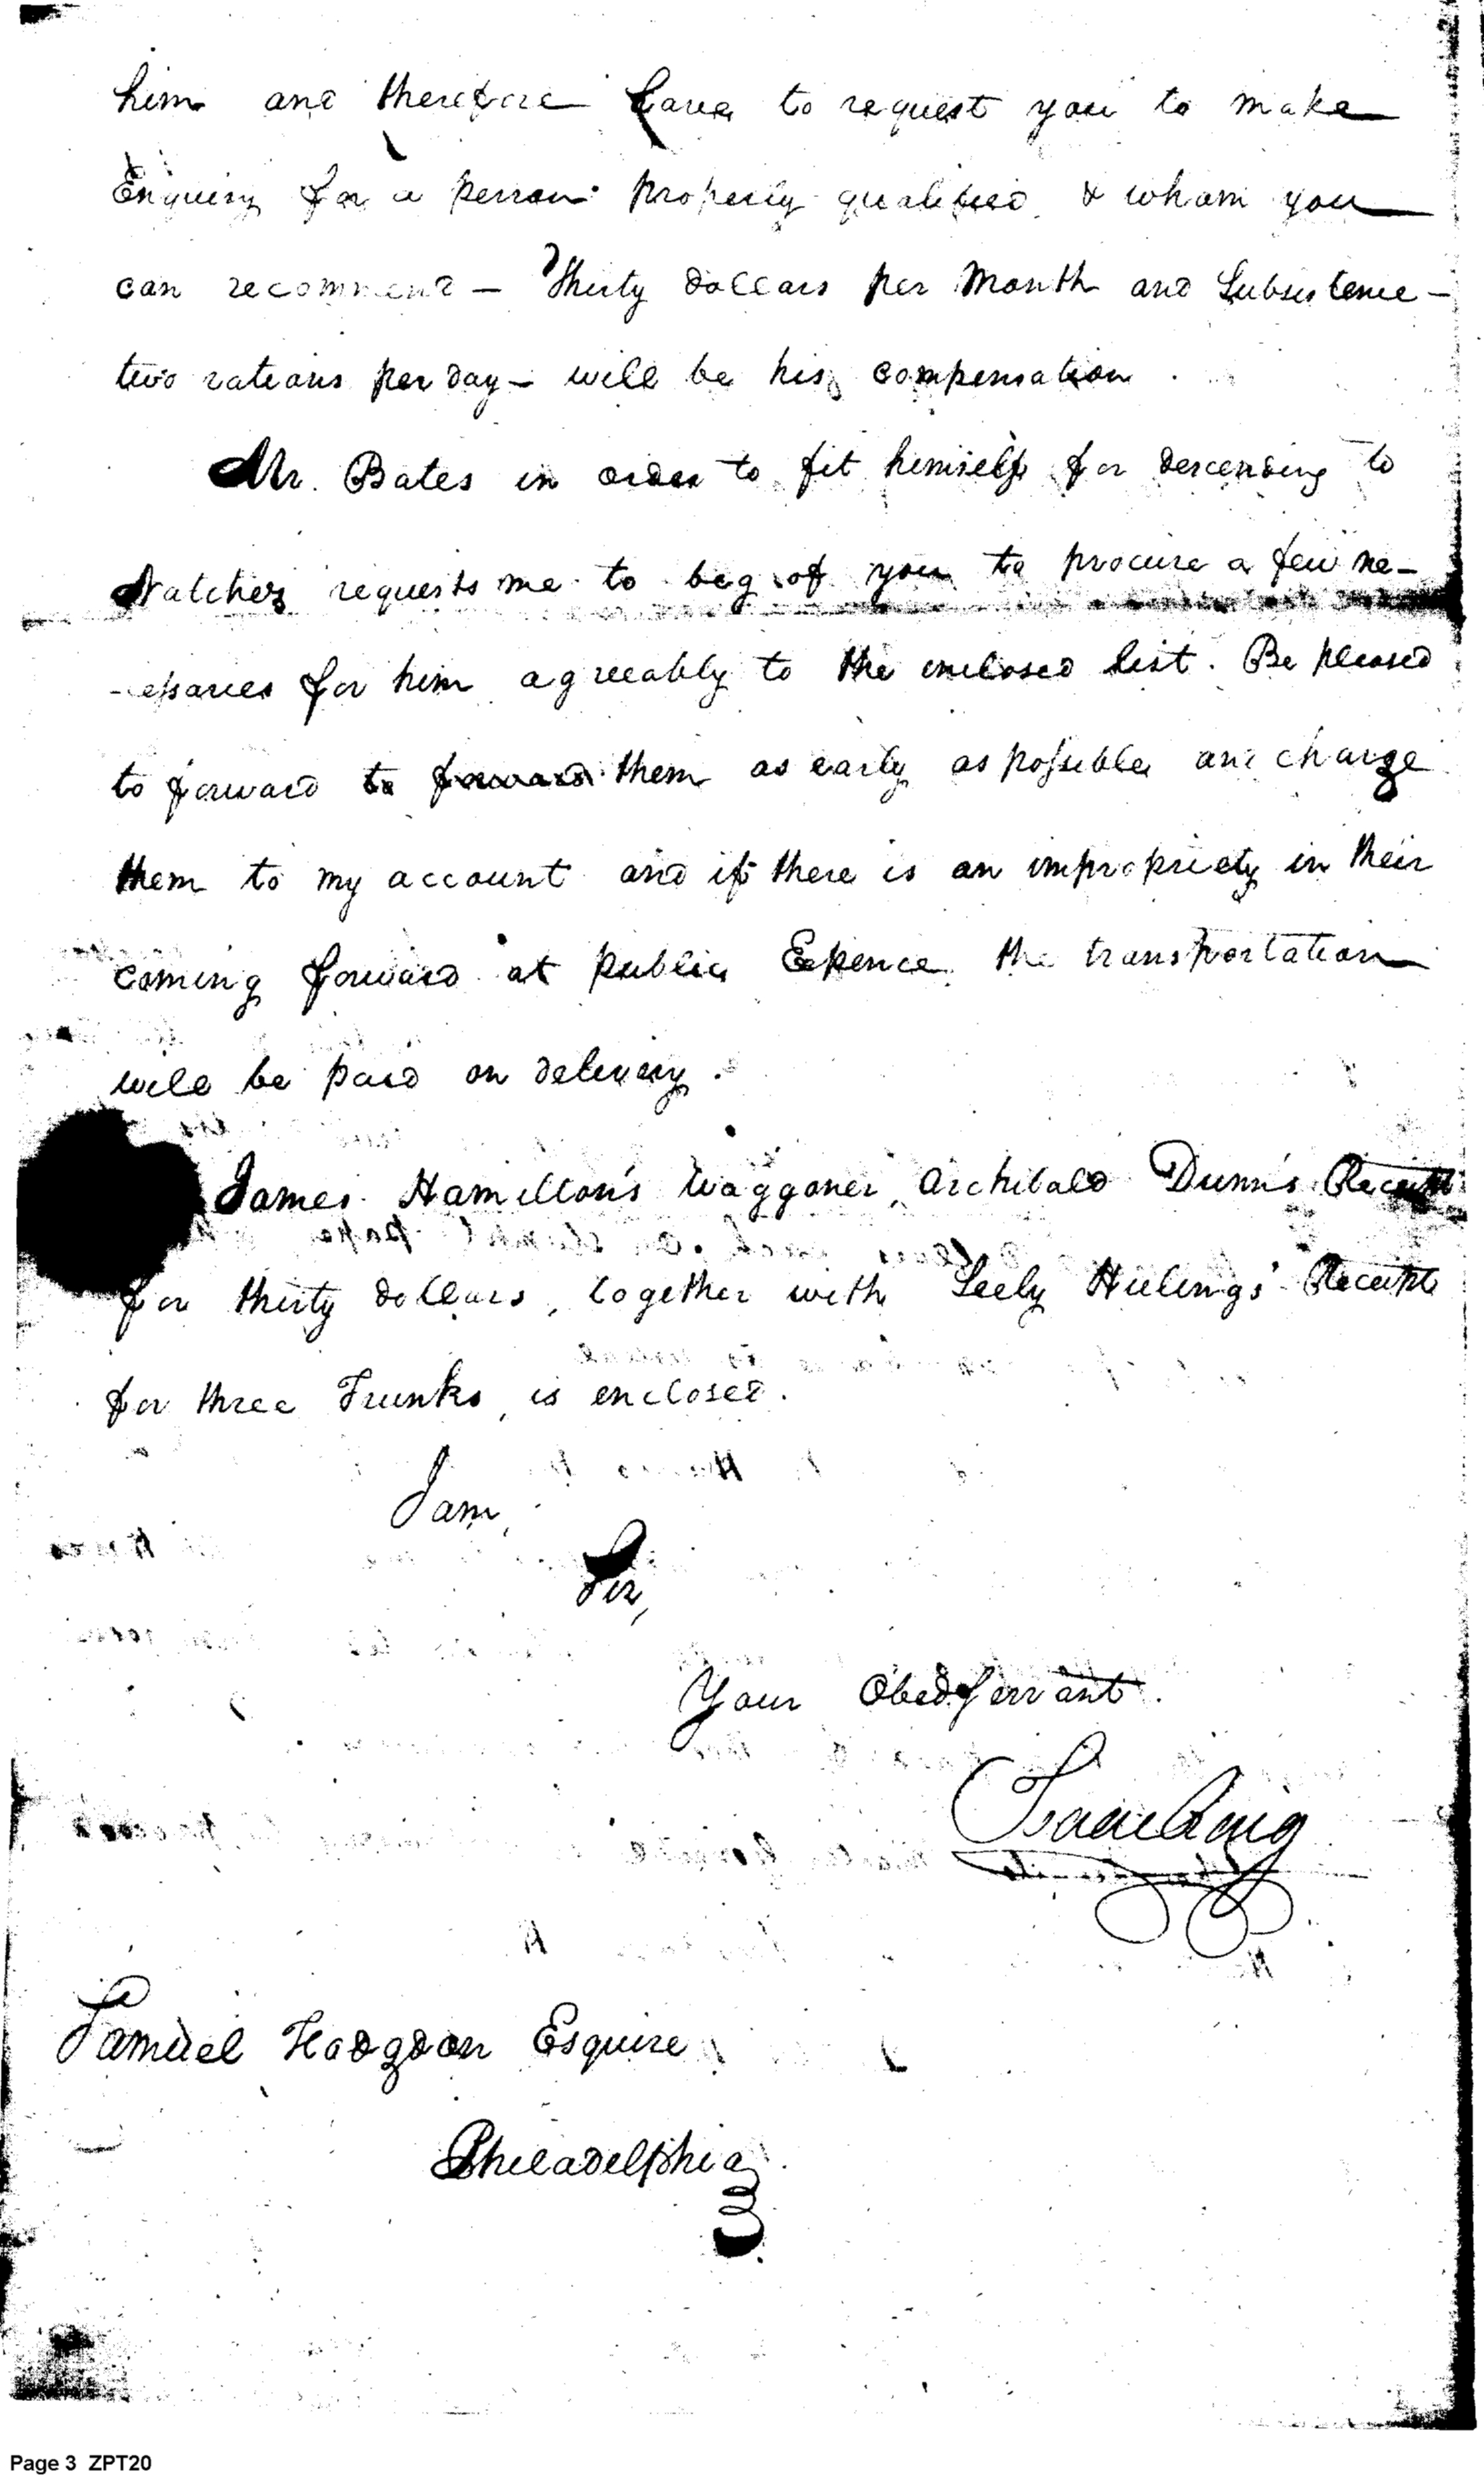 him and therefore have to request you to make
Enquiry for a person properly qualified & whom you
can recommend – Thirty dollars per Month and Subsistence –
two rations per day – will be his compensation.
Mr. Bates in order to fit himself for descending to
Natchez requests me to beg of you to procure a few ne-
-cessaries for him agreeably to the enclosed list. Be pleased
to forward to forward them as early as possible and charge
them to my account and if there is an impropriety in their
coming forward at public Expence the transportation
will be paid on delivery.
James Hamilton's Waggoner, Archibald Dunn's Receipt
for thirty dollars, together with Seely Hulings' Receipt
for three Trunks, is enclosed.
I am,
Sir,
Your Obed Servant.
Isaac Craig
Samuel Hodgdon Esquire
Philadelphia
Page 3 ZPT20